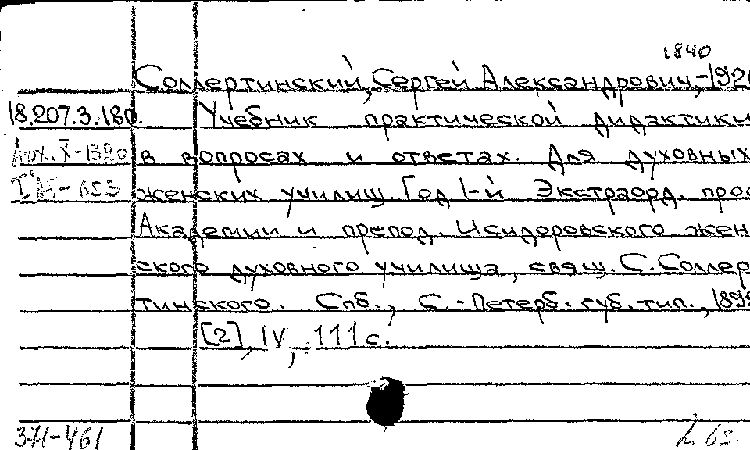 1840
Соллертинский, Сергей Александрович, -192
18.207.3.180. Учебник практической дидактики
в вопросах и ответах. Для духовных
женских училищ. Год 1-й Экстраорд. проф
Академии и препод. Исидоровского жен-
ского духовного училища, свящ. С. Соллер-
тинского. Спб., С.-Петерб. губ. тип., 189
[2], IV, 111 с.
371-461